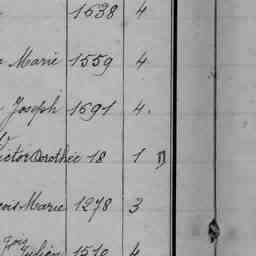 1638 4
Marie 1559 4
Joseph 1691 4.
Victor Dorothée 18 1 D
çois Marie 1278 3
fois
Julien 1510 4